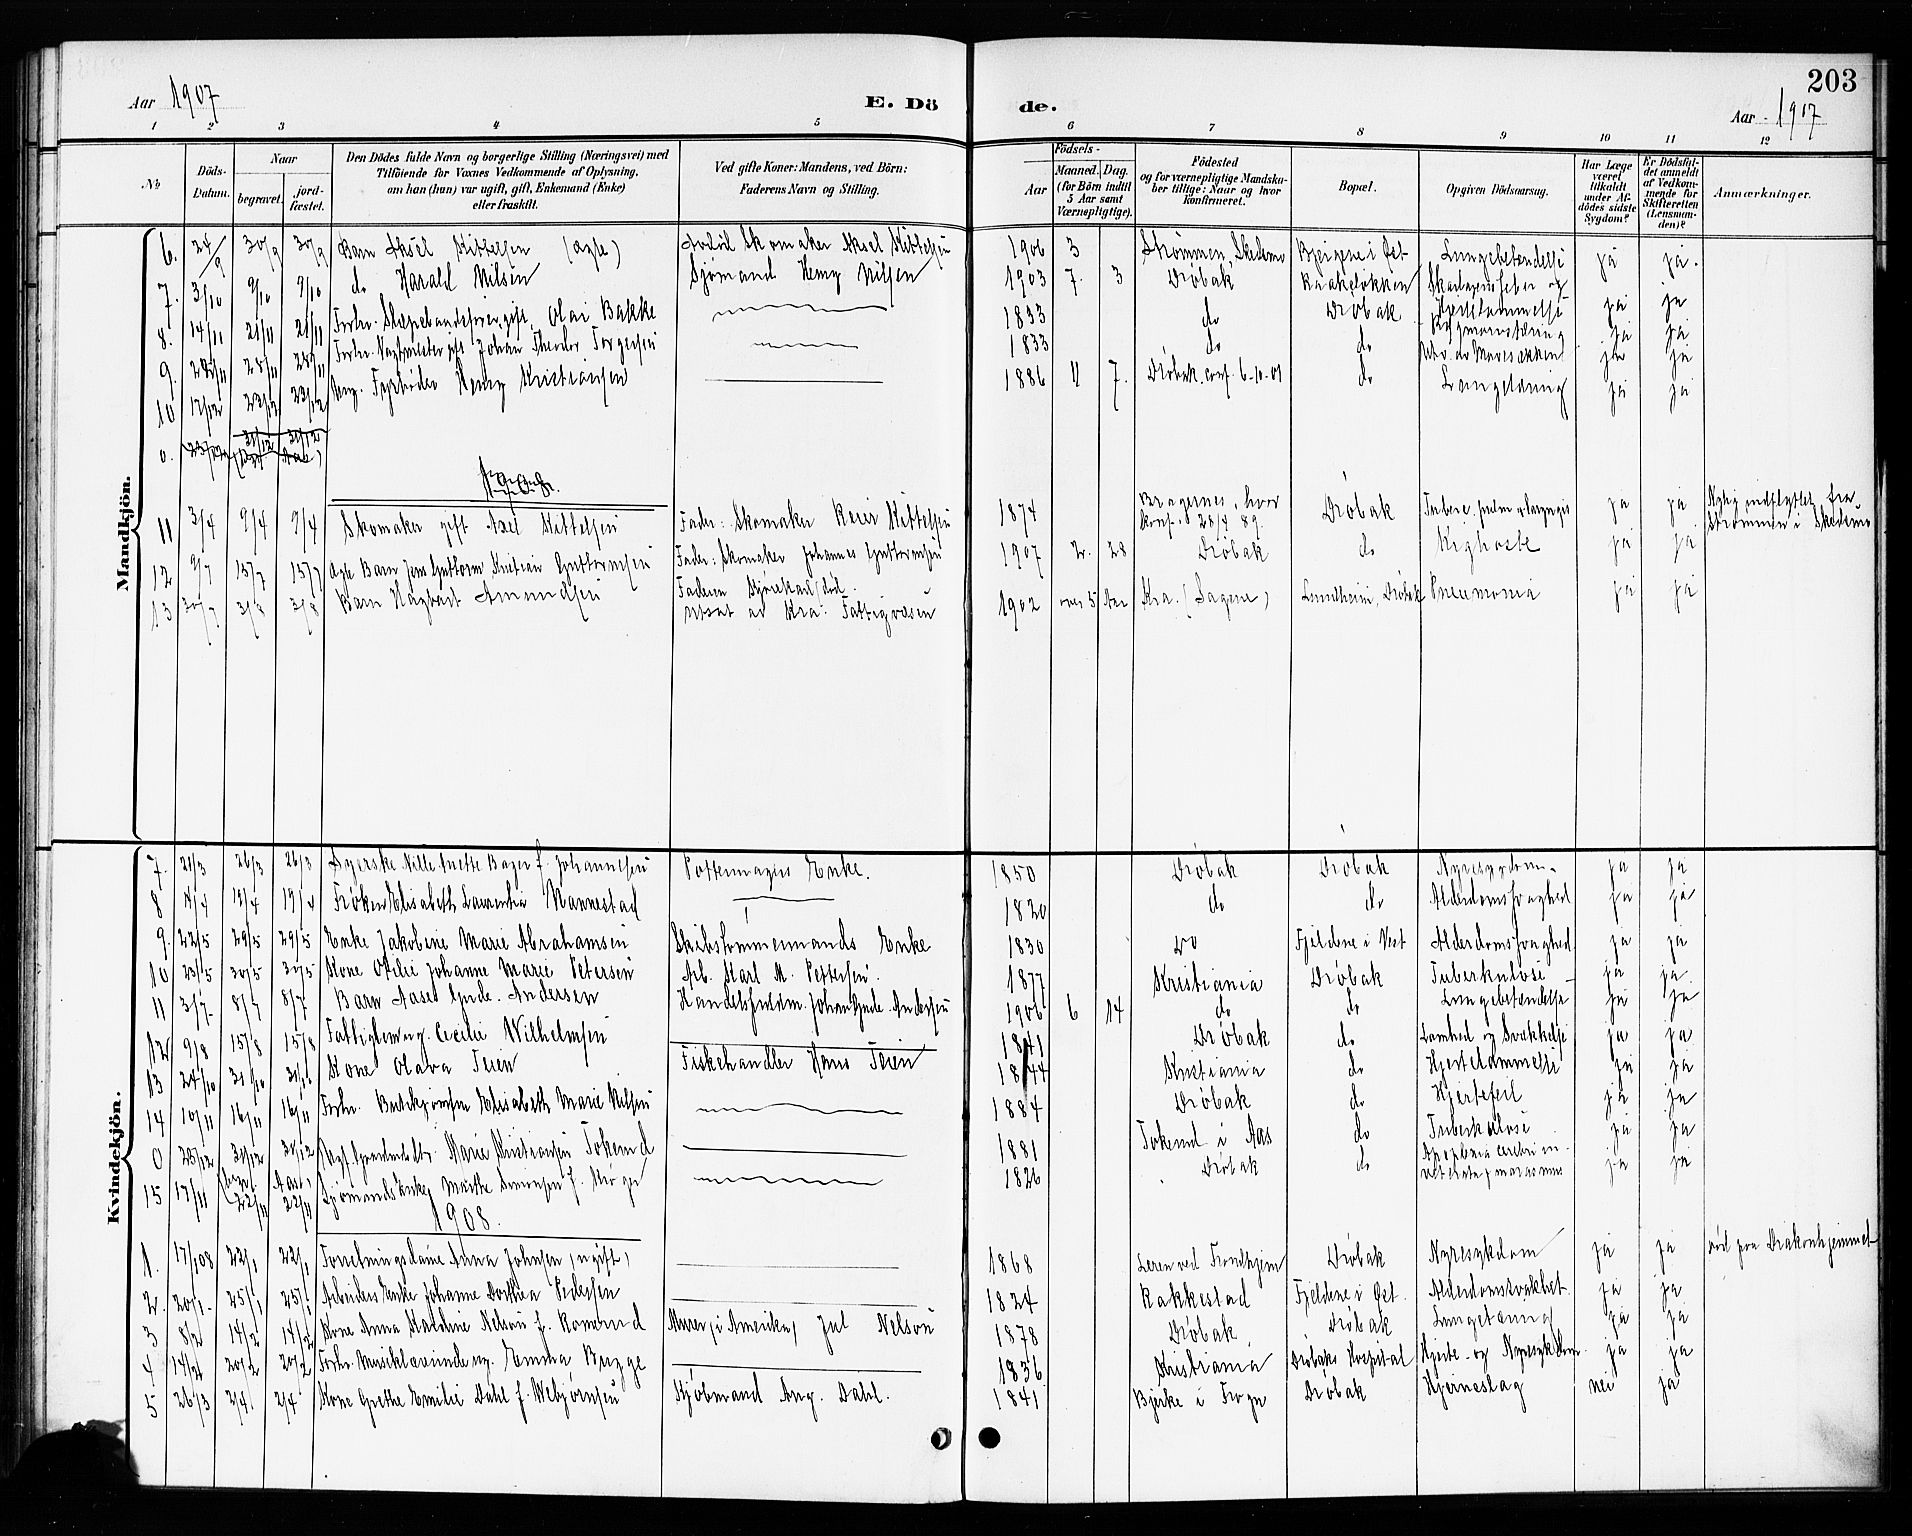 203
Aar 1907
E. Dö
de.
Aar 1907
1 2 3 4 5 6 7 8 9 10 11 12
No
Döds-Datum.
Naar
begravet.
jord-fæstet.
Den Dödes fulde Navn og borgerlige Stilling (Næringsvei) med
Tilföiende for Voxnes Vedkommende af Oplysning,
om han (hun) var ugift, gift, Enkemand (Enke)
eller fraskilt.
Ved gifte Koner: Mandens, ved Börn:
Faderens Navn og Stilling.
Födsels-
Aar
Maaned. Dag.
(for Börn indtil
5 Aar samt
Værnepligtige).
Födested
og for værnepligtige Mandska-
ber tillige: Naar og hvor
konfirmeret.
Bopæl.
Opgiven Dödsaarsag.
Har Læge
været
tilkaldt
under Af-
dödes sidste
Sygdom?
Er Dödsfal-
det anmeldt
af Vedkom-
mende for
Skifteretten
(Lensman-
den)?
Anmærkninger.
Mandkjön.
6. 24/9 30/9 30/9 Barn Aksel Kittelsen Skomaker Aksel Kittelsen 1906 3 Strømmen, Lungebetendelse ja ja.
7. 3/10 9/10 9/10 do Harald Nilsen Sjømand Henry Nilsen 1903 7. 3 Drøbak Skarlagensfeber og ja ja
8. 14/11 21/11 21/11 Forhv. gift, Olai Bakke 1833 do Drøbak Hjertelammelse ja ja
9. 28/11 28/11 Forhv. gift Johan Theodor Torgersen 1833 do do ja ja
10 17/12 23/12 23/12 Ung. Fyrbøder Henry Kristiansen 1886 11 7. Drøbak. conf. 6-10-01 do Lungetæring ja ja
0. 31/12 31/12
1908.
11 3/4 9/4 9/4 Skomaker gift Axel Kittelsen Fader: Skomaker Kittelsen 1874 Bragernes, hvor Drøbak ja ja Nylig indflyttet fra
konf. 28/4 89. Strømmen i Skedsmo
12 9/7 15/7 15/7 Barn Jens Guttorm Kristian Guttormsen Fader: Skomaker Johannes Guttormsen 1907 2. 28 Drøbak do Kighoste ja ja
13 30/7 3/8 3/8 Barn Hagbart Amundsen Faderen død. 1902 over 5 Aar Kra. (Sagene) Drøbak Pneumonia ja ja
Utsat av Kra. Fattigvæsen
Kvindekjön.
7. 21/3 26/3 26/3 Syerske f. Johannesen Pottemagers Enke. 1850 Drøbak Drøbak Nyresygdom ja ja
8 14/4 19/4 19/4 Frøken Elisabeth Laurentia Mannestad 1820 do do Alderdomssvaghed ja ja
9. 22/5 29/5 29/5 Enke Jakobine Marie Abrahamsen Skibstømmermands Enke 1830 do Fjeldene i Vest Alderdomssvaghed ja ja
10 23/5 30/5 30/5 Kone Otilie Johanne Marie Petersen Arb. Karl M. Pettersen. 1877 Kristiania Drøbak Tuberkulose ja ja
11 3/7 8/7 8/7 Barn Aases Gude. Andersen Johan Gude Andersen 1906 6 14 do do Lungebetændelse ja ja
12 9/8 15/8 15/8 Fattiglem ug. Cecilie Vilhelmsen 1841 Drøbak do Lamhed og Svækkelse ja ja
13 24/10 31/10 31/10 Kone Olava Teien Fiskehandler Hans Teien 1844 Kristiania do Hjertelammelse ja ja
14 10/11 16/11 16/11 Forhv. Elisabeth Marie Nilsen 1884 Drøbak do Hjertefeil ja ja
0 25/12 30/12 30/12 Marie Kristiansen Tokerud 1881 Tokerud i Aas do Tuberkulose ja ja
15 17/11 22/11 22/11 Sjømands Enke, Marthe Simonsen f. 1826 Drøbak do Apoplexia cerebri ja ja
1908.
1. 17/1 08 22/1 22/1 Forretningsdame Anna Johnsen, ugift, 1868 Leren ved Trondhjem Drøbak Nyresykdom ja ja død paa Diakonhjemmet
2. 20/1 25/1 25/1 Arbeiders Enke Johanne Dorthea Pedersen 1824 Rakkestad Fjeldene i Øst. Alderdomssvakhet ja ja
3 8/2 14/2 14/2 Kone Anna Nelson f. Murer, i Amerika, Jul Nelson 1878 Drøbak Drøbak Lungetæring ja ja
4 14/2 20/2 20/2 Forhv. Musiklærerinde ug. Emma Bugge 1836 Kristiania Drøbaks Hospital Hjerte- og Nyresykdom. ja ja
5 26/3 2/4. 2/4 Kone Grethe Emilie Dahl f. Webjørnsen Kjøbmand Ang. Dahl. 1841 Bjerke i Frogn Drøbak Hjerneslag nei ja